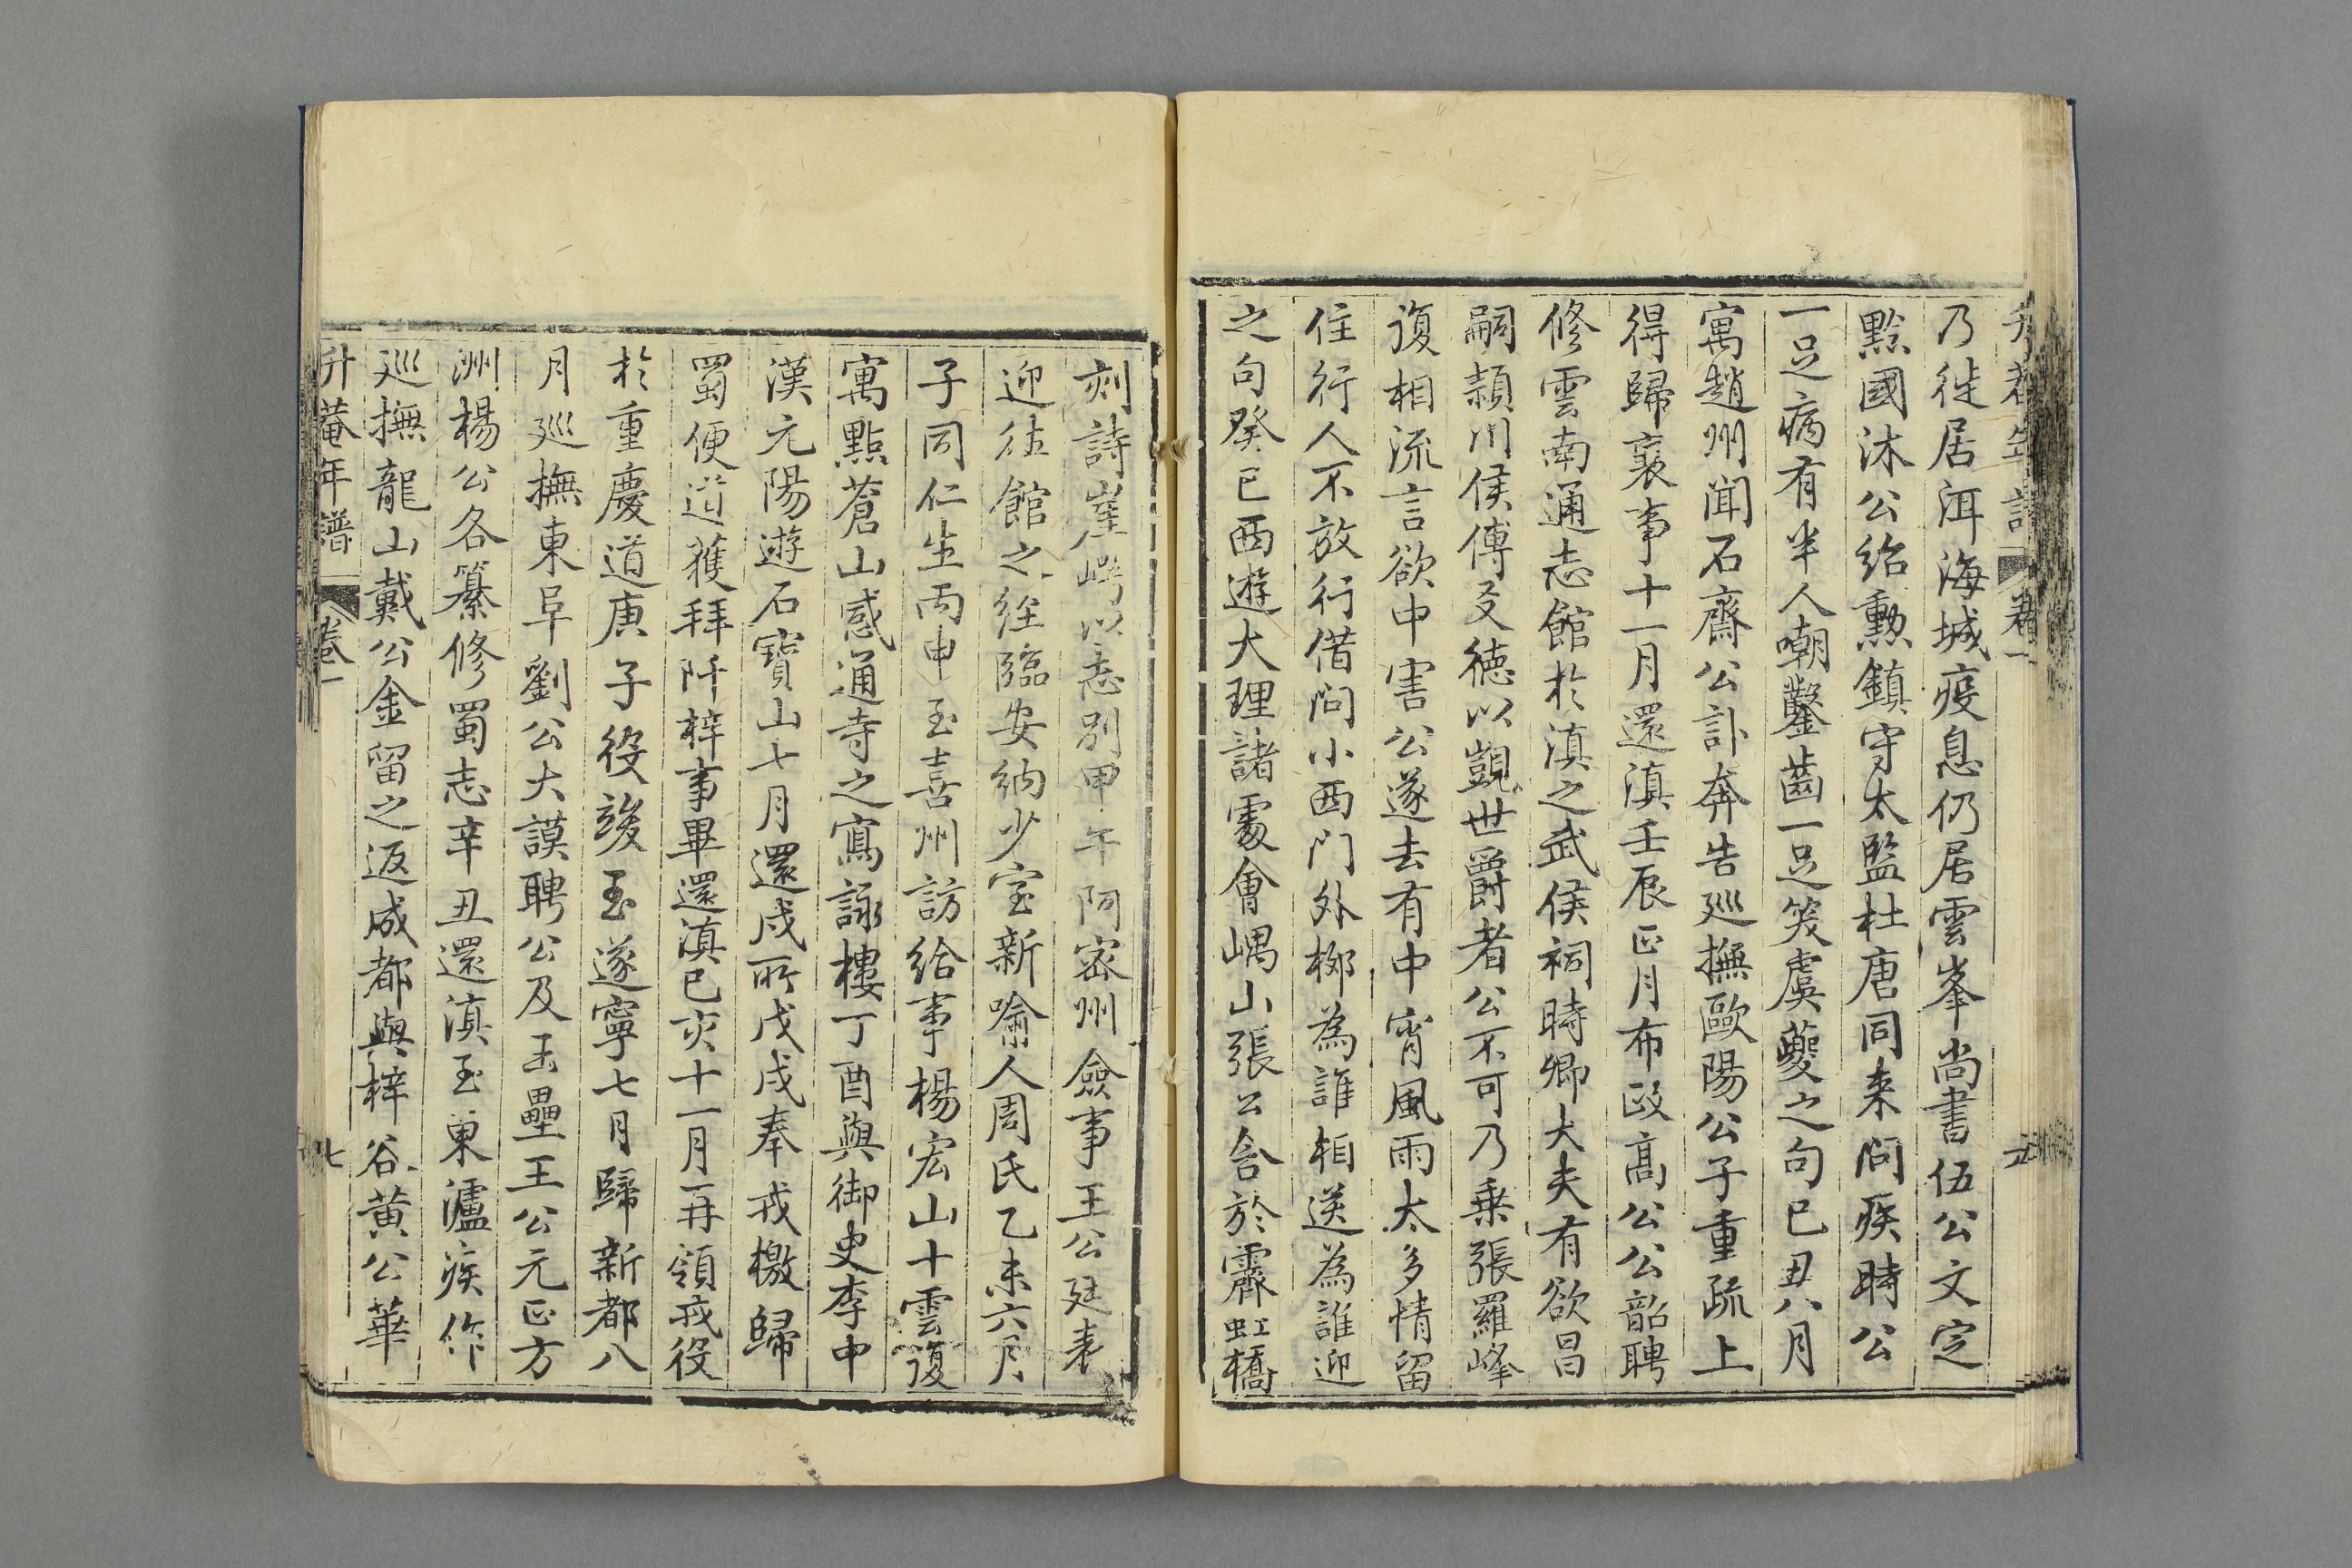 升菴年譜 卷一 五
乃徙居洱海城疫息仍居雲峯尚書伍公文定
黔國沐公紹勲鎮守太監杜唐同来問疾時公
一足病有半人嘲鑿齒一足笑虞夔之句巳丑八月
寓趙州聞石齋公訃奔告廵撫歐陽公子重疏上
得歸襄事十一月還滇壬辰正月布政髙公公韶聘
修雲南通志館於滇之武侯祠時卿大夫有欲昌
嗣頴川侯傅友徳以覬世爵者公不可乃乗張羅峰
復相流言欲中害公遂去有中宵風雨太多情留
住行人不放行借問小西门外柳為誰相送為誰迎
之句癸已西遊大理諸䖏會嵎山張公含於霽虹橋
刻詩崖㟧以志别甲午阿宻州僉事王公廷表
迎徃館之経臨安納少室新喻人周氏乙未六月
子同仁生丙申至喜州訪給事楊宏山十雲復
寓點蒼山感通寺之寫詠樓丁酉與御史李中
漢元陽遊石寳山七月還戍所戊戌奉戎檄歸
蜀便道獲拜阡梓事畢還滇已亥十一月再領戎役
於重慶道庚子役竣至遂寧七月歸新都八
月廵撫東阜劉公大謨聘公及玉壘王公元正方
洲楊公名纂修蜀志辛丑還滇至東瀘疾作
廵撫龍山戴公金留之返成都與梓谷黄公華
升菴年譜 卷一 七